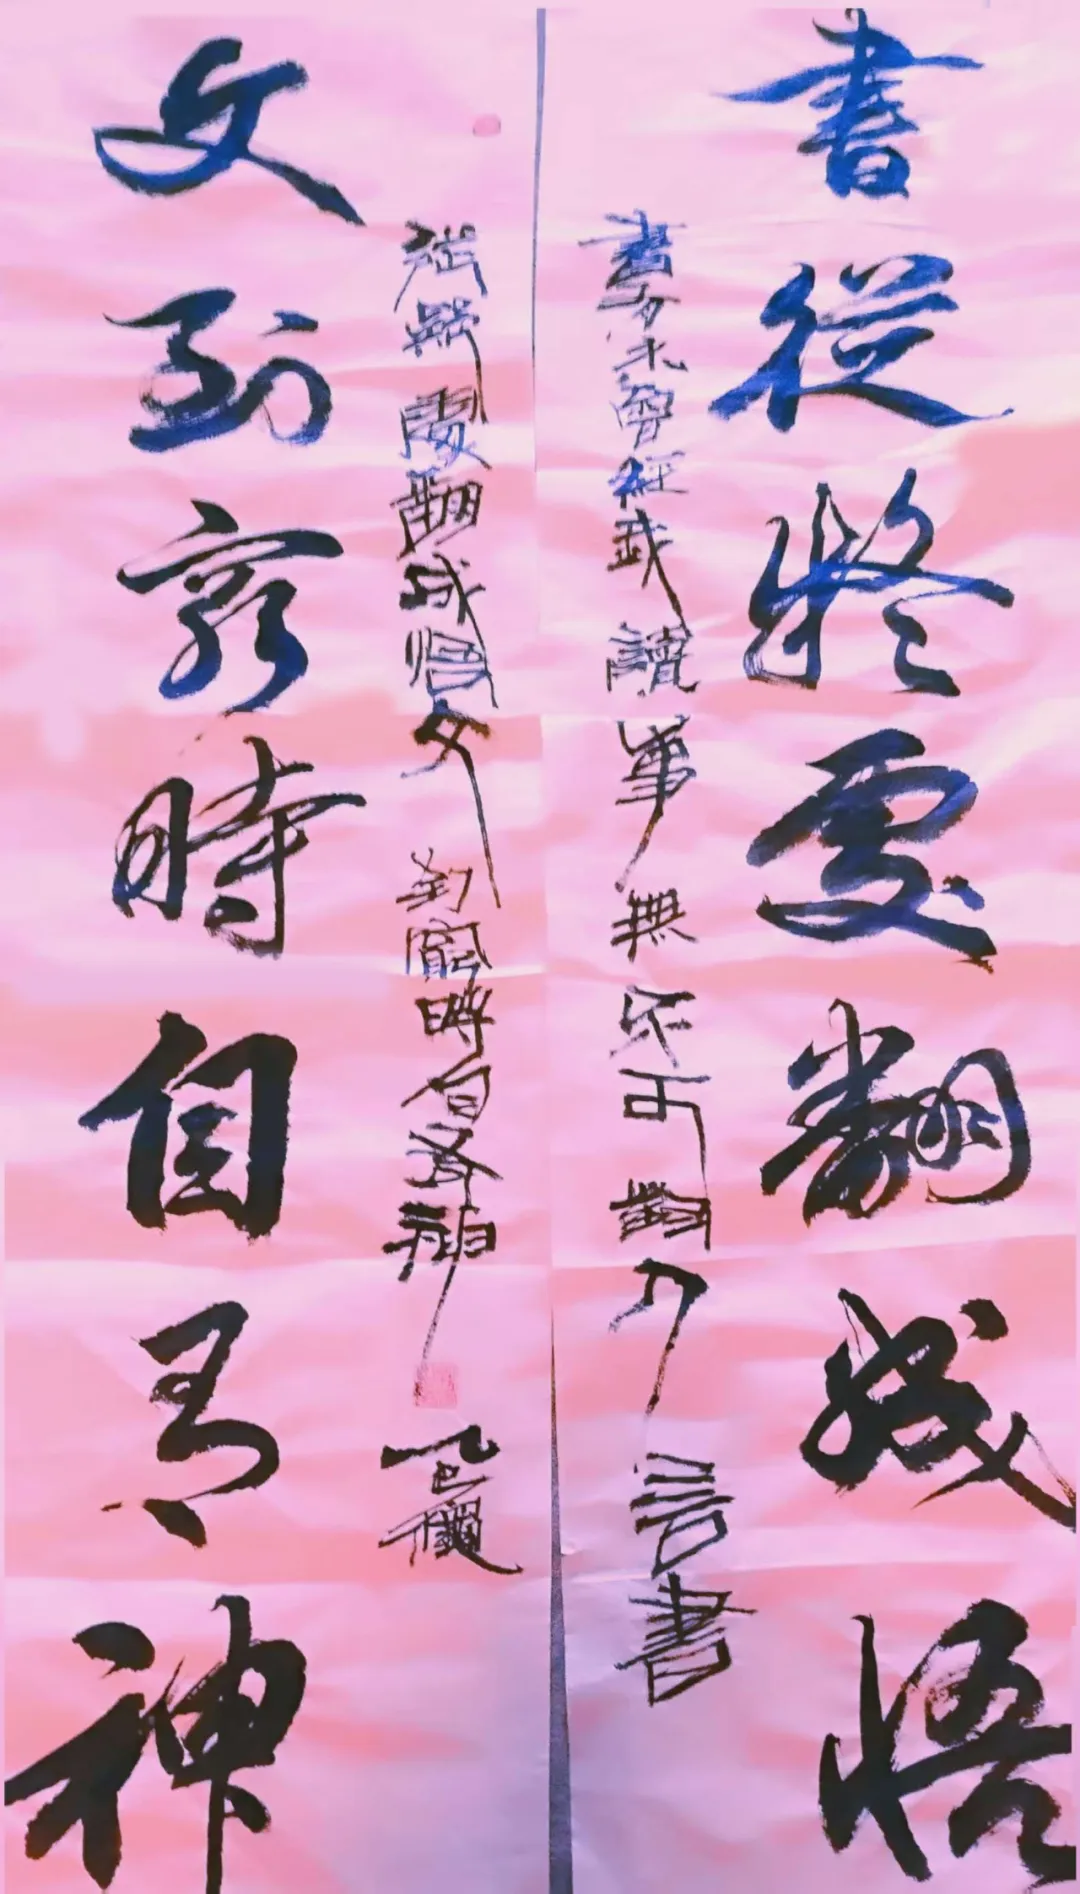 書從疑處翻成悟
書有未曾經我讀事無不可對人言書
從疑處翻成悟文到窮時自有神
文到窮時自有神